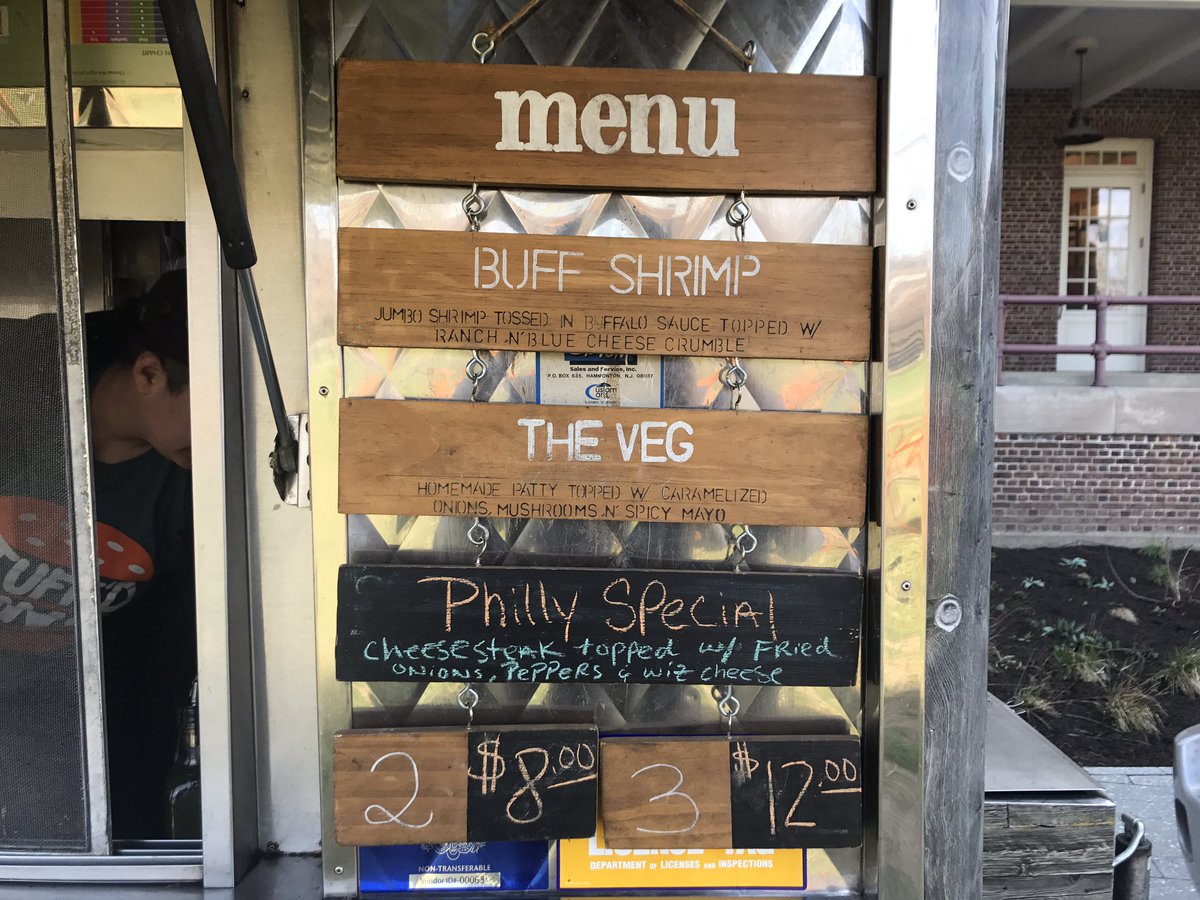 menu
BUFF SHRIMP
JUMBO SHRIMP TOSSED IN BUFFALO SAUCE TOPPED W/
RANCH N' BLUE CHEESE CRUMBLE
Sales and Service, Inc.
P.O. BOX 635, HAMMONTON, N.J. 08037
THE VEG
HOMEMADE PATTY TOPPED W/ CARAMELIZED
ONIONS, MUSHROOMS N' SPICY MAYO
Philly Special
Cheesesteak topped w/ Fried
onions, Peppers & wiz cheese
2 $8.00 3 $12.00
NON-TRANSFERABLE
Vendor ID#
DEPARTMENT OF LICENSES AND INSPECTIONS